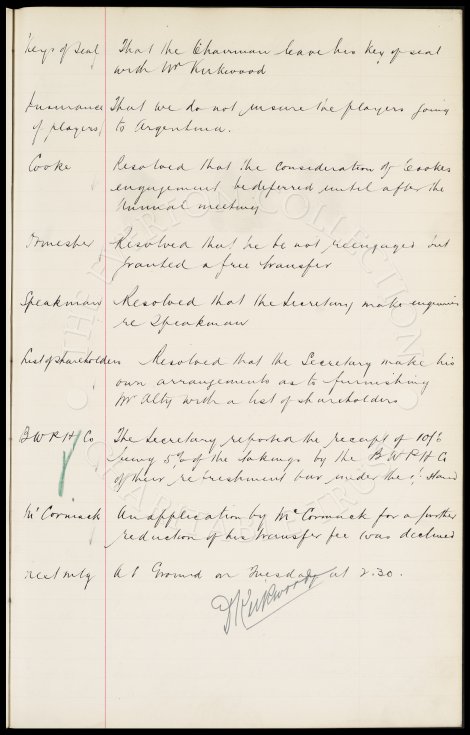 Keys of Seal That the Chairman leave his key of seal
with Mr Kirkwood
Insurance That we do not insure the players going
of players to Argentina.
Cooke Resolved that the consideration of Cookes
engagement be deferred until after the
Annual meeting
Resolved that he be not reengaged but
granted a free transfer
Speakman Resolved that the Secretary make enquiries
re Speakman
List of shareholders Resolved that the Secretary make his
own arrangements as to furnishing
Mr Alty with a list of shareholders
B W R H Co The Secretary reported the receipt of 10/6
being 5% of the takings by the B W R H Co
of their refreshment bar under the Stand
McCormack An application by McCormack for a further
reduction of his transfer fee was declined
next mtg At Ground on Tuesday at 2.30.
D Kirkwood
THE EVERTON COLLECTION
CHARITABLE TRUST